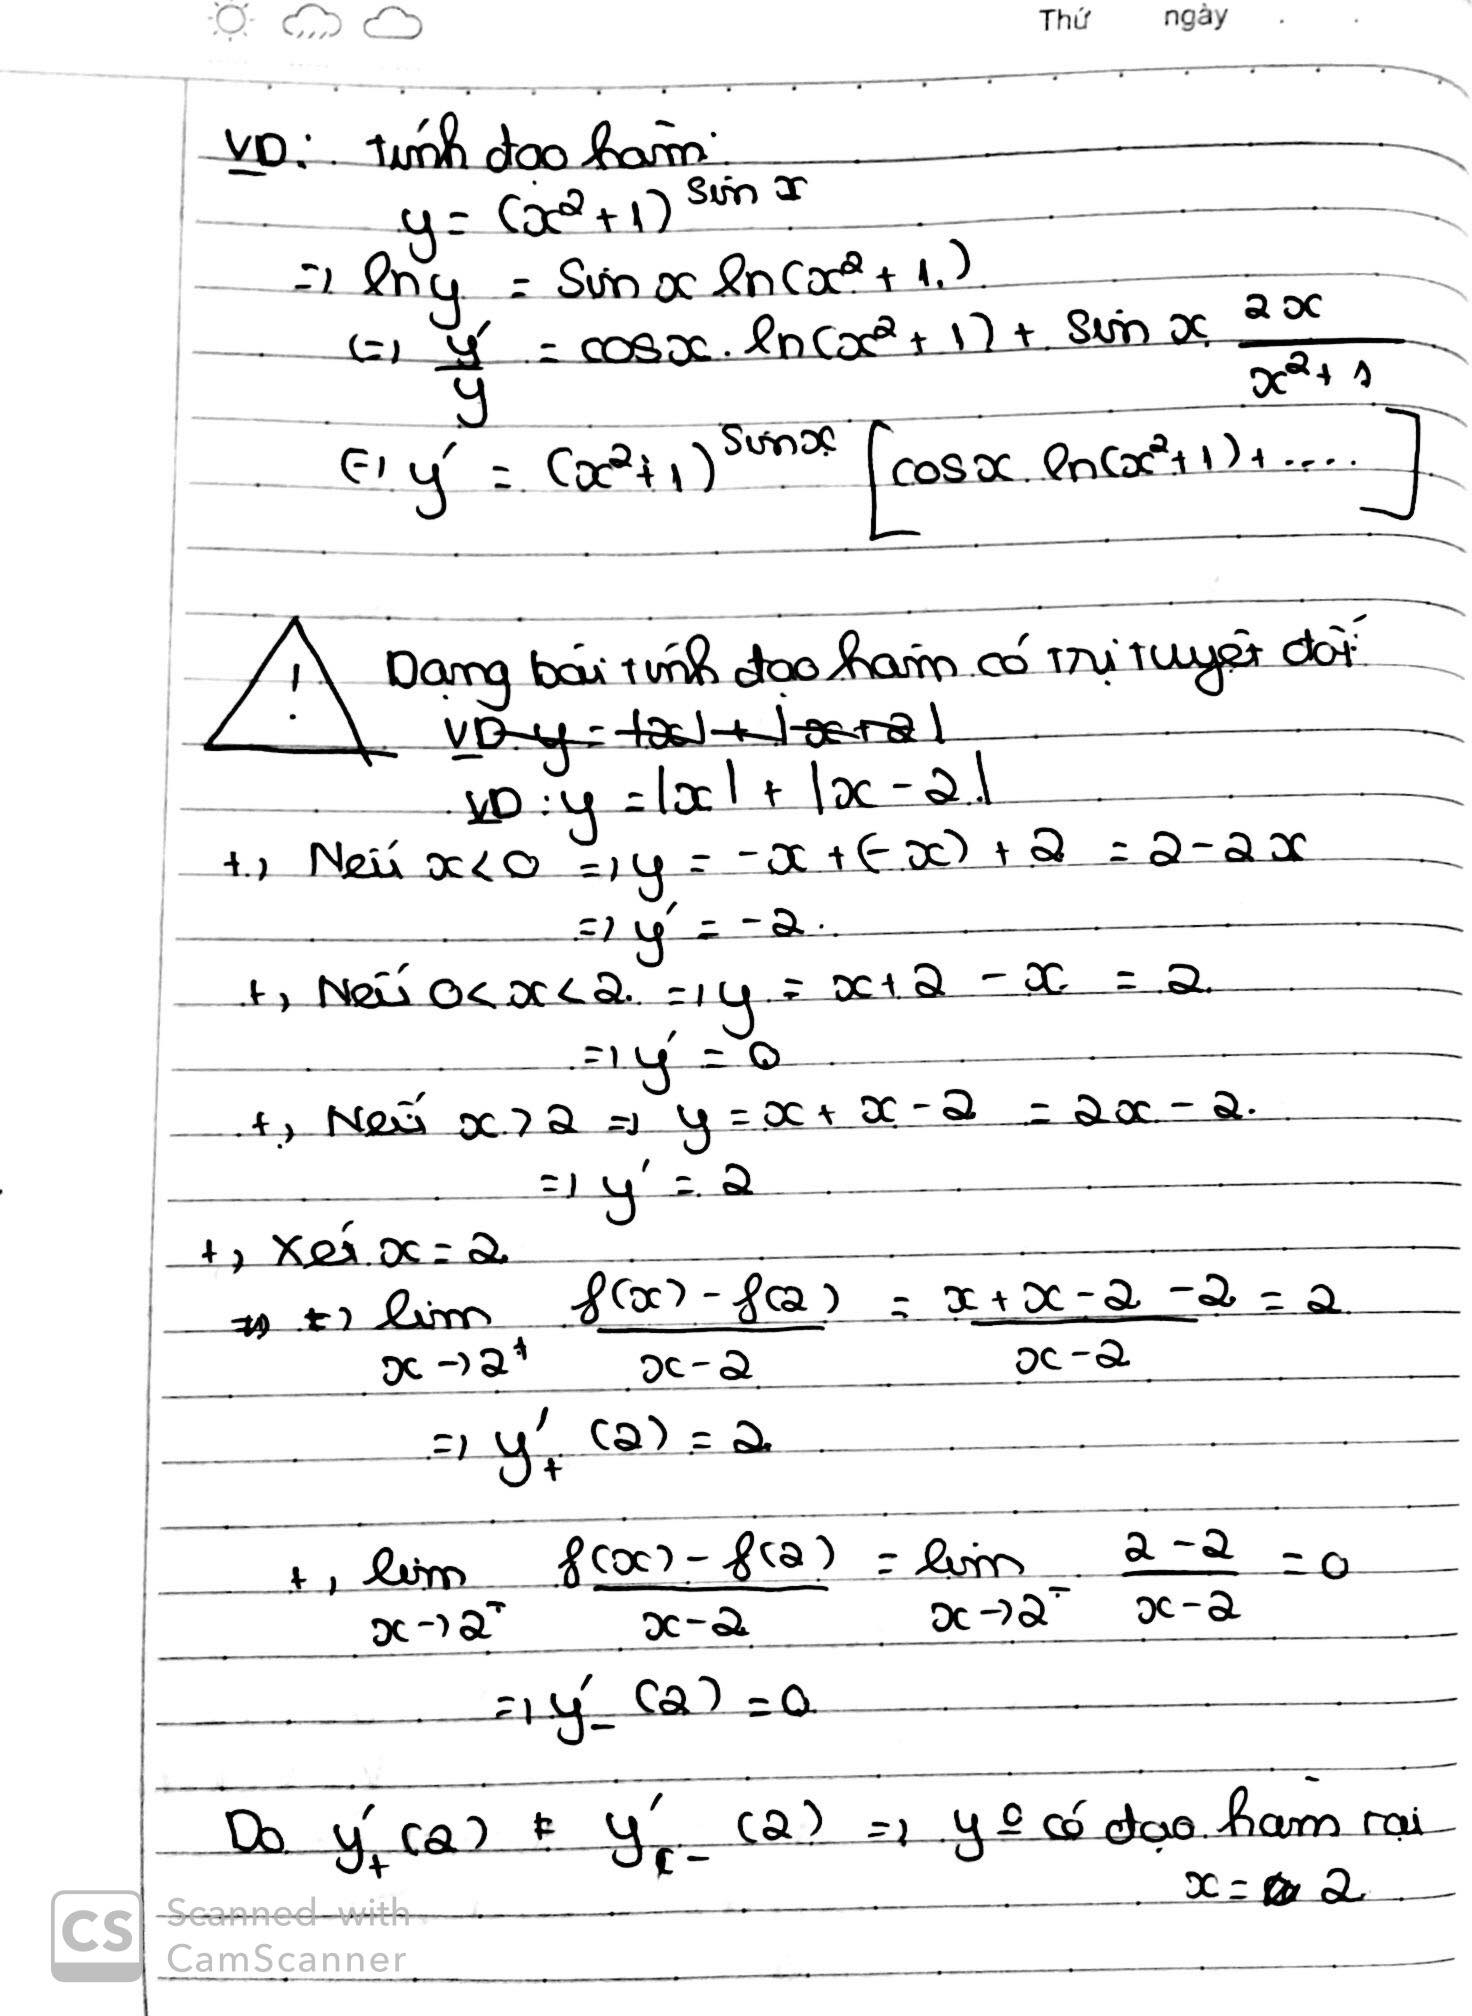 Thứ ngày
VD: tính đạo hàm:
y = (x²+1)^sin x
=> ln y = sin x ln(x²+1)
<=> y'/y = cosx. ln(x²+1) + sin x. 2x/(x²+1)
<=> y' = (x²+1)^sinx [cosx. ln(x²+1)+....]
! Dạng bài tính đạo hàm có trị tuyệt đối
VD y = |x| + |x+2|
VD: y = |x| + |x-2|
+, Nếu x<0 => y = -x + (-x) + 2 = 2-2x
=> y' = -2.
+, Nếu 0<x<2. => y = x+2 - x = 2.
=> y' = 0
+, Nếu x>2 => y = x + x - 2 = 2x - 2.
=> y' = 2
+, Xét x = 2
+, lim x->2⁺ (f(x) - f(2))/(x-2) = (x+x-2-2)/(x-2) = 2
=> y'₊ (2) = 2
+, lim x->2⁻ (f(x) - f(2))/(x-2) = lim x->2⁻ (2-2)/(x-2) = 0
=> y'₋ (2) = 0
Do y'₊(2) ≠ y'₋ (2) => y o có đạo hàm tại
x = 2
CS Scanned with
CamScanner